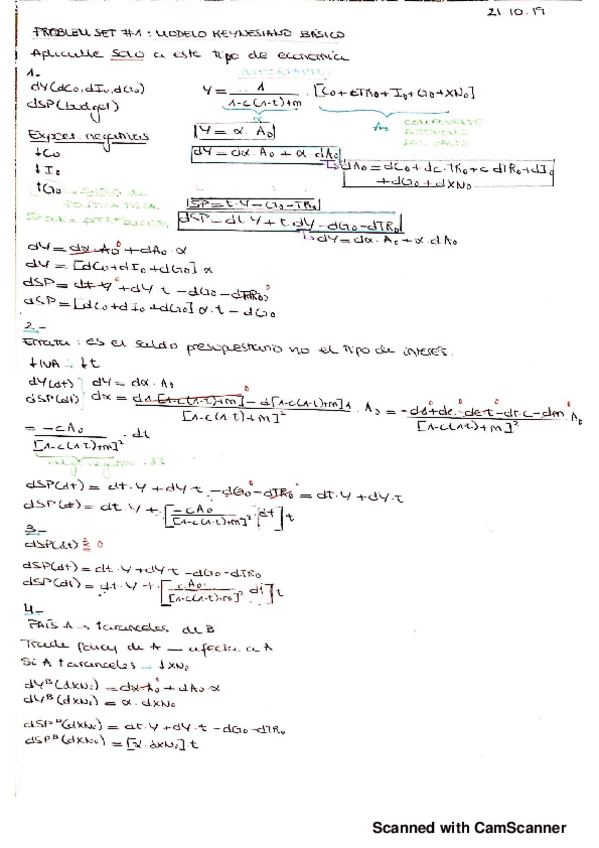 21.10.19
PROBLEM SET #1: MODELO KEYNESIANO BÁSICO
Aplicable SOLO a este tipo de economía
IMPORTANTE
1.-
dY(dC₀, dI₀, dG₀)
dSP(budget)
Y = 1 / (1-c(1-t)+m) · [C₀ + cTR₀ + I₀ + G₀ + XN₀]
α
A₀ COMPONENTE AUTÓNOMO DEL GASTO
Expres. negativas
↓C₀
↓I₀
↑G₀
POLÍTICA FISCAL
Y = α · A₀
dY = dα · A₀ + α · dA₀
dA₀ = dC₀ + dc · TR₀ + c dTR₀ + dI₀ + dG₀ + dXN₀
SP = t · Y - G₀ - TR₀
dSP = dt Y + t · dY - dG₀ - dTR₀
dY = dα · A₀ + α · dA₀
dY = dα · A₀ ⁰ + dA₀ · α
dY = [dC₀ + dI₀ + dG₀] α
dSP = dt · Y ⁰ + dY · t - dG₀ - dTR₀ ⁰
dSP = [dC₀ + dI₀ + dG₀] α · t - dG₀
2.-
Errata: es el saldo presupuestario no el tipo de interés.
↓IVA : ↓t
dY(dt) dY = dα · A₀
dSP(dt) dα = d1 [1-c(1-t)+m] ⁰ - d[1-c(1-t)+m] 1 / [1-c(1-t)+m]² · A₀ = / [1-c(1-t)+m]² A₀
= -cA₀ / [1-c(1-t)+m]² · dt
dSP(dt) = dt · Y + dY · t - dG₀ ⁰ - dTR₀ ⁰ = dt · Y + dY · t
dSP(dt) = dt Y + [-cA₀ / [1-c(1-t)+m]² · dt] t
3.-
dSP(dt) 0
dSP(dt) = dt · Y + dY · t - dG₀ - dTR₀
dSP(dt) = dt · Y + [cA₀ / [1-c(1-t)+m]² · dt] t
4.-
PAÍS A → ↑aranceles de B
Trade policy de A — afecta a A
Si A ↑aranceles → ↓XN₀
dYᴮ(dXN₀) = dα · A₀ ⁰ + dA₀ · α
dYᴮ(dXN₀) = α · dXN₀
dSPᴮ(dXN₀) = dt · Y + dY · t - dG₀ - dTR₀
dSPᴮ(dXN₀) = [α · dXN₀] t
Scanned with CamScanner